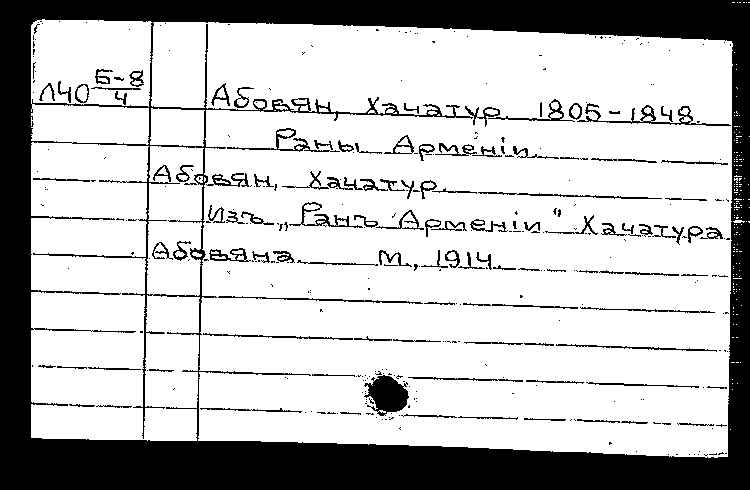 Л40 Б-8/4
Абовян, Хачатур. 1805-1848.
Раны Арменіи.
Абовян, Хачатур.
Изъ „Ранъ Арменіи" Хачатура
Абовяна. М., 1914.